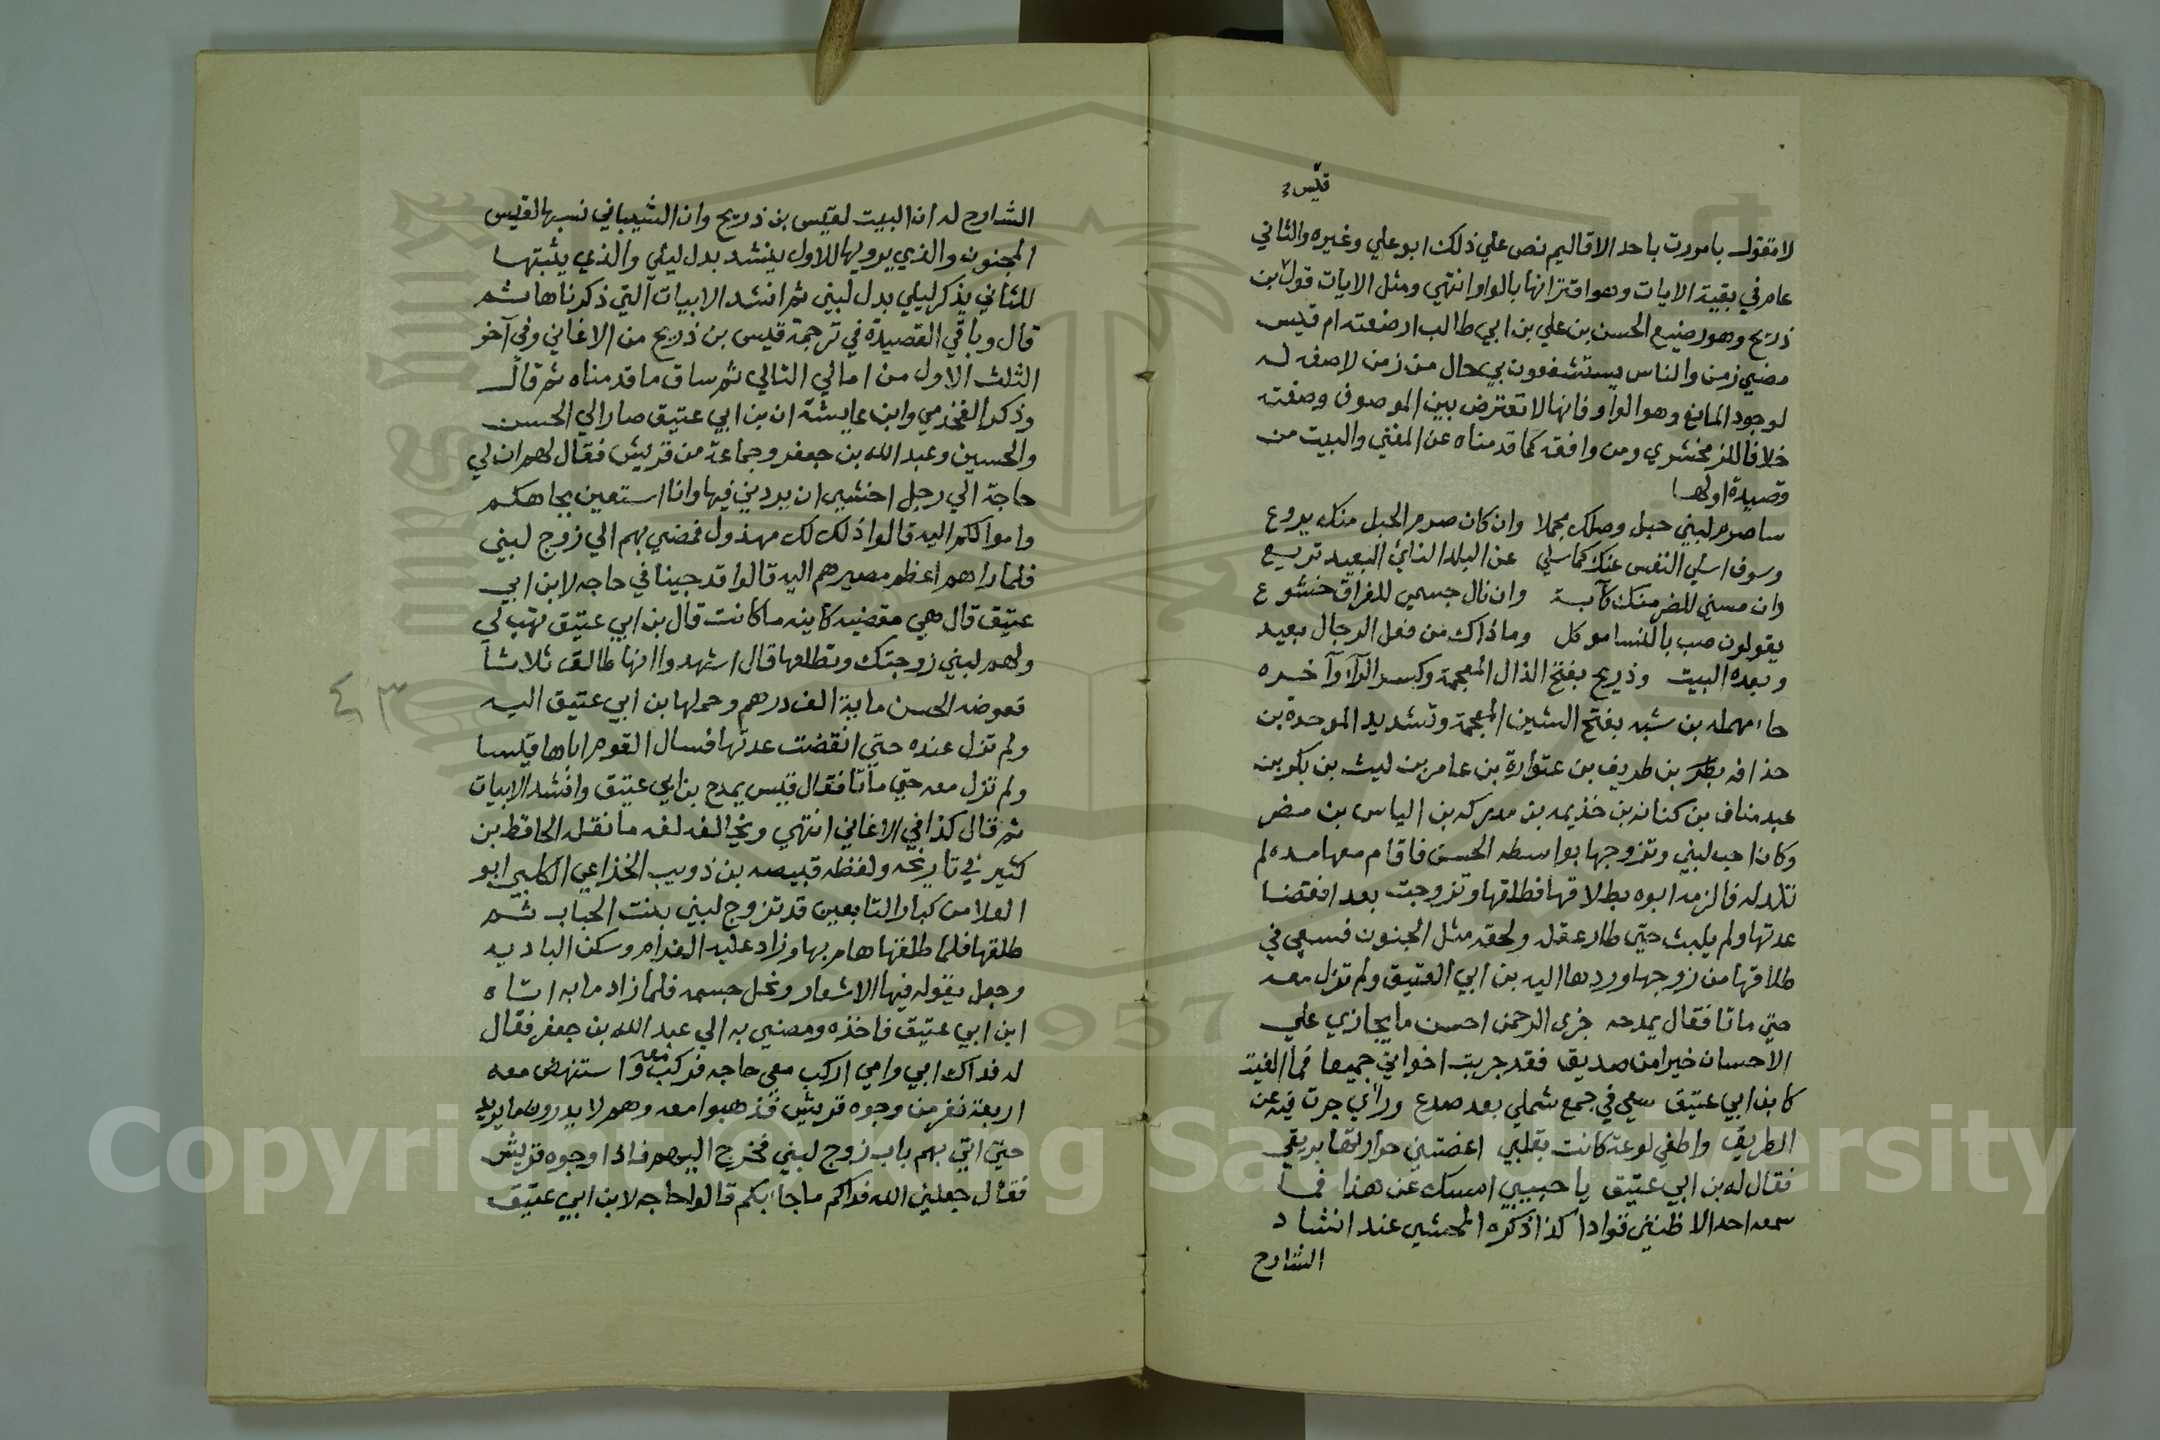 قيس
لا تقول بامررت باحد الاقاليم نص علي ذلك ابو علي وغيره والثاني
عام في بقية الايات وهو اقترانها بالواو انتهي ومثل الايات قول بن
ذريح وهو رضيع الحسن بن علي بن ابي طالب ارضعته ام قيس
مضي زمن والناس يستشفعون بي حال من زمن لاصفه له
لوجود المانع وهو الواو فانها لا تعترض بين الموصوف وصفته
خلافا للزمخشري ومن وافقه كما قدمناه عن المغني والبيت من
قصيدة اولها
ساصرم لبني حبل وصلك مجملا وان كان صرم الحبل منك يروع
وسوف اسلي النفس عنك كما سلي عن البلد النائي البعيد تريع
وان مسني للضر منك كآبة وان نال جسمي للفراق خشوع
يقولون صب بالنسا موكل وما ذاك من فعل الرجال بعيد
وبعده البيت وذريح بفتح الذال المعجمة وكسر الرآء وآخره
حاء مهمله بن شبه بفتح الشين المعجمة وتشديد الموحدة بن
حذافه بن طريف بن عتوارة بن عامر بن ليث بن بكر بن
عبد مناف بن كنانه بن خذيمه بن مدركه بن الياس بن مضر
وكان احب لبني وتزوجها بواسطه الحسن فاقام معها مده لم
تلد له فالزمه ابوه بطلاقها فطلقها وتزوجت بعد انقضا
عدتها ولم يلبث حتي طار عقله ولحقه مثل الجنون فسعي في
طلاقها من زوجها وردها اليه بن ابي العتيق ولم تزل معه
حتي ماتا فقال يمدحه جزي الرحمن احسن ما يجازي علي
الاحسان خيرا من صديق فقد جربت اخواني جميعا فما الفيت
كابن ابي عتيق سعي في جمع شملي بعد صدع وراي جرت فيه عن
الطريق واطفي لوعة كانت بقلبي اغصتني حرارتها بريقي
فقال له بن ابي عتيق يا حبيبي امسك عن هذا فما
سمعه احد الا ظنني قوادا كذا ذكره المحشي عند انشاد
الشارح
الشارح له ان البيت لقيس بن ذريح وان الشيباني نسبها لقيس
المجنون والذي يرويها للاول ينشد بدل ليلي والذي يثبتها
للثاني يذكر ليلي بدل لبني ثم انشد الابيات التي ذكرناها ثم
قال وباقي القصيدة في ترجمة قيس بن ذريح من الاغاني وفي آخر
الثلث الاول من امالي القالي ثم ساق ما قدمناه ثم قال
وذكر القخذمي وابن عايشة ان بن ابي عتيق صار الي الحسن
والحسين وعبد الله بن جعفر وجماعة من قريش فقال لهم ان لي
حاجة الي رجل اخشي ان يردني فيها وانا استعين بجاهكم
واموالكم اليه قالوا ذلك لك مبذول فمضي بهم الي زوج لبني
فلما راهم اعظم مصيرهم اليه قالوا قد جينا في حاجه لابن ابي
عتيق قال هي مقضيه كاينه ما كانت قال بن ابي عتيق تهب لي
ولهم لبني زوجتك وتطلقها قال اشهدوا انها طالق ثلاثا
فعوضه الحسن ماية الف درهم وحملها بن ابي عتيق اليه
ولم تزل عنده حتي انقضت عدتها فسال القوم اباها قيسا
ولم تزل معه حتي ماتا فقال قيس يمدح بن ابي عتيق وانشد الابيات
ثم قال كذا في الاغاني انتهي ويخالفه لفه ما نقله الحافظ بن
كثير في تاريخه ولفظه قبيصه بن ذويب الخذاعي الكلبي ابو
العلا من كبار التابعين قد تزوج لبني بنت الحباب ثم
طلقها فلما طلقها هام بها وزاد عليه الغرام وسكن الباديه
وجعل يقول فيها الاشعار ونحل جسمه فلما زاد ما به اتاه
ابن ابي عتيق فاخذه ومضي به الي عبد الله بن جعفر فقال
له فداك ابي وامي اركب معي حاجه فركب معه واستنهض معه
اربعة نفر من وجوه قريش فذهبوا معه وهم لا يدرون ما يريد
حتي اتي بهم باب زوج لبني فخرج اليهم فاذا وجوه قريش
فقال جعلني الله فداكم ما جاء بكم قالوا حاجه لابن ابي عتيق
٤٣
Copyright © King Saud University
1957